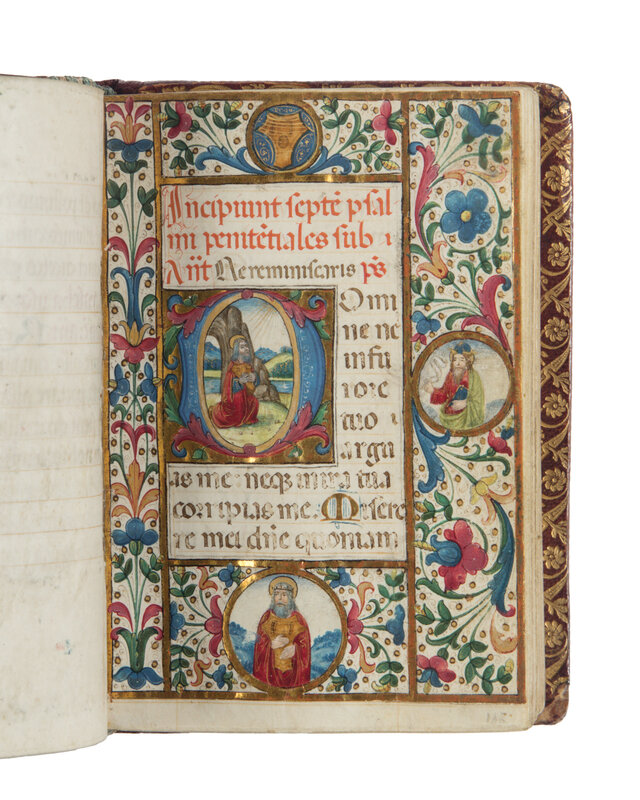 Incipiunt septẽ psal
mi penitẽtiales sub ı
Añt Ne reminiscaris ps̃
Domi
ne ne
in fu
rore
tuo ı
argu
as me: neqz in ira tua
corripias me. Misere
re mei dñe quoniam